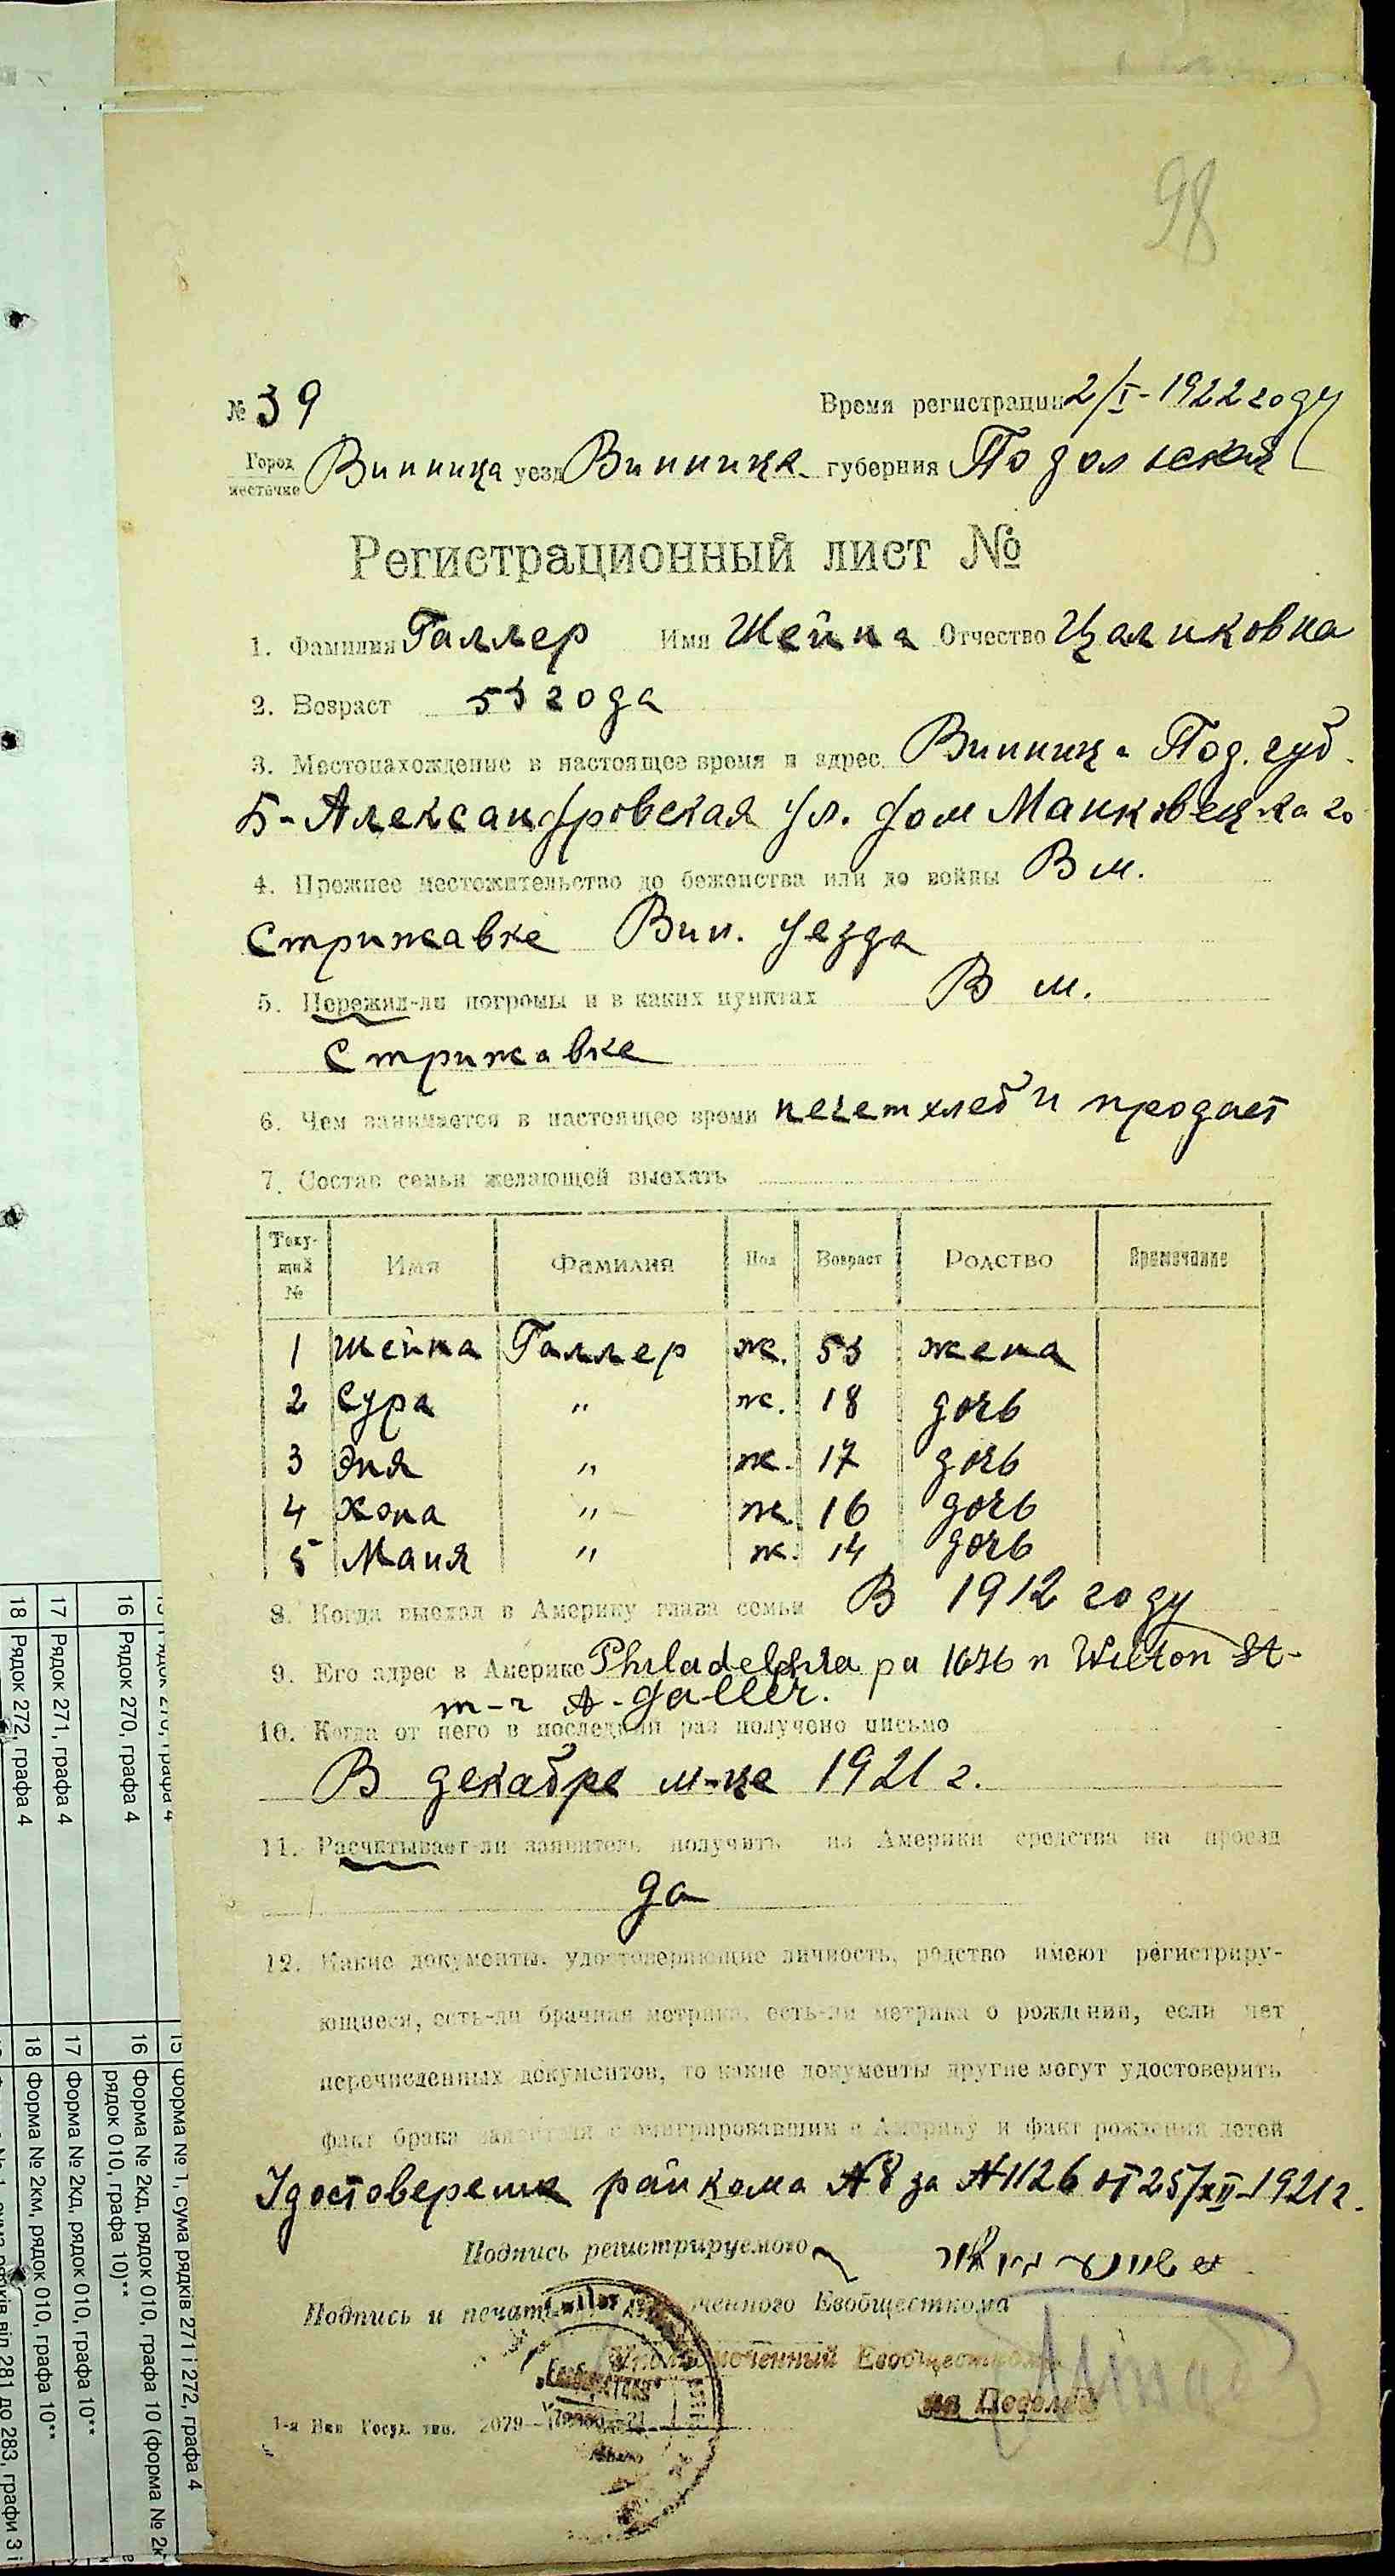 98
№ 39 Время регистрации 2/I - 1922 году
Город местечко Винница уезд Винница губерния Подольской
Регистрационный лист №
1. Фамилия Галлер Имя Шейна Отчество Цаликовна
2. Возраст 53 года
3. Местонахождение в настоящее время и адрес. Винница Под. губ.
Б-Александровская ул. дом Маньковецкаго
4. Прежнее местожительство до беженства или до войны В м.
Стрижавке Вин. уезда
5. Пережил-ли погромы и в каких пунктах В м.
Стрижавке
6. Чем занимается в настоящее время печет хлеб и продает
7. Состав семьи желающей выехать
Теку-щий № Имя Фамилия Пол Возраст Родство Примечание
1 Шейна Галлер ж. 53 жена
2 Сура " ж. 18 дочь
3 Эня " ж. 17 дочь
4 Хона " ж. 16 дочь
5 Маня " ж. 14 дочь
8. Когда выехал в Америку глава семьи В 1912 году
9. Его адрес в Америке Philadelphia pa 1646 n Wilton St-
m-r A. Galler.
10. Когда от него в последний раз получено письмо
В декабре м-це 1921 г.
11. Расчитывает-ли заявитель получить из Америки средства на проезд
да
12. Какие документы, удостоверяющие личность, родство имеют регистриру-
ющиеся, есть-ли брачная метрика, есть-ли метрика о рождении, если нет
перечисленных документов, то какие документы другие могут удостоверить
факт брака заявителя с эмигрировавшим в Америку и факт рождения детей
Удостоверение райкома №8 за №1126 от 25/XII-1921 г.
Подпись регистрируемого
Подпись и печать Евобщесткома
Уполномоченный Евобщесткома
на Подолии
1-я Вин Госуд. тип. 2079
15 Форма № 1, сума рядків 271 і 272, графа 4
16 Рядок 270, графа 4 16 Форма № 2кд, рядок 010, графа 10 (форма № 2к
рядок 010, графа 10)**
17 Рядок 271, графа 4 17 Форма № 2кд, рядок 010, графа 10**
18 Рядок 272, графа 4 18 Форма № 2км, рядок 010, графа 10**
від 281 до 283, графи 3 і